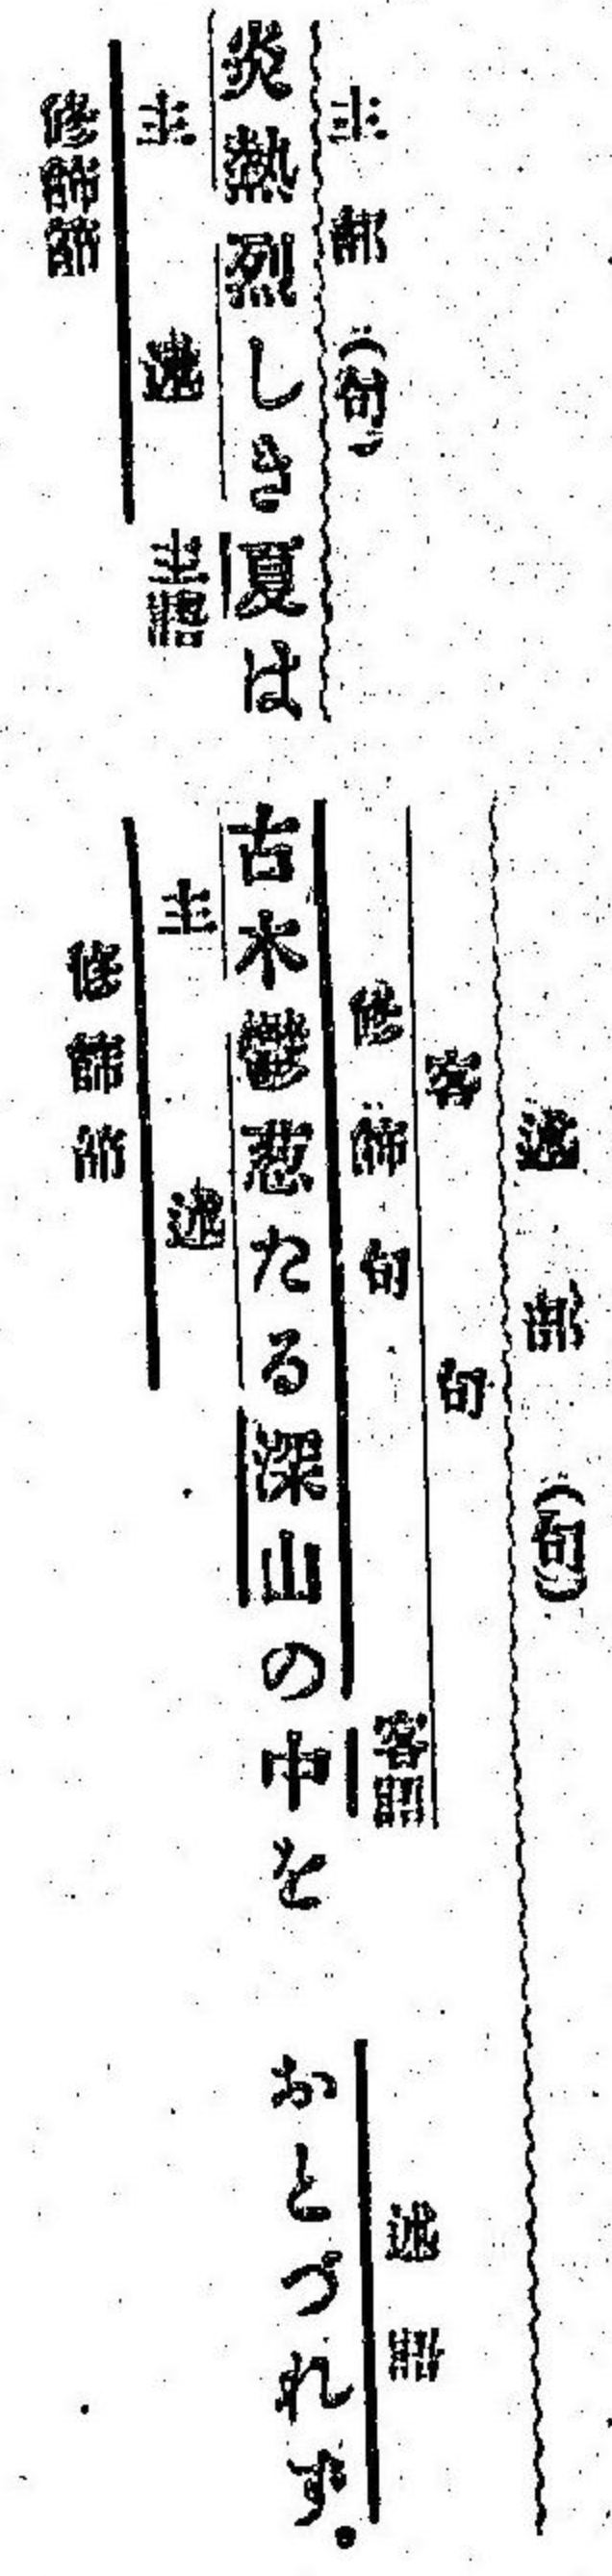 述部(句)
客句
修飾句
客語
述語
主部(句)
炎熱烈しき夏は 古木鬱葱たる深山の中を おとづれず。
主 述 主語
主 述
修飾節
修飾節